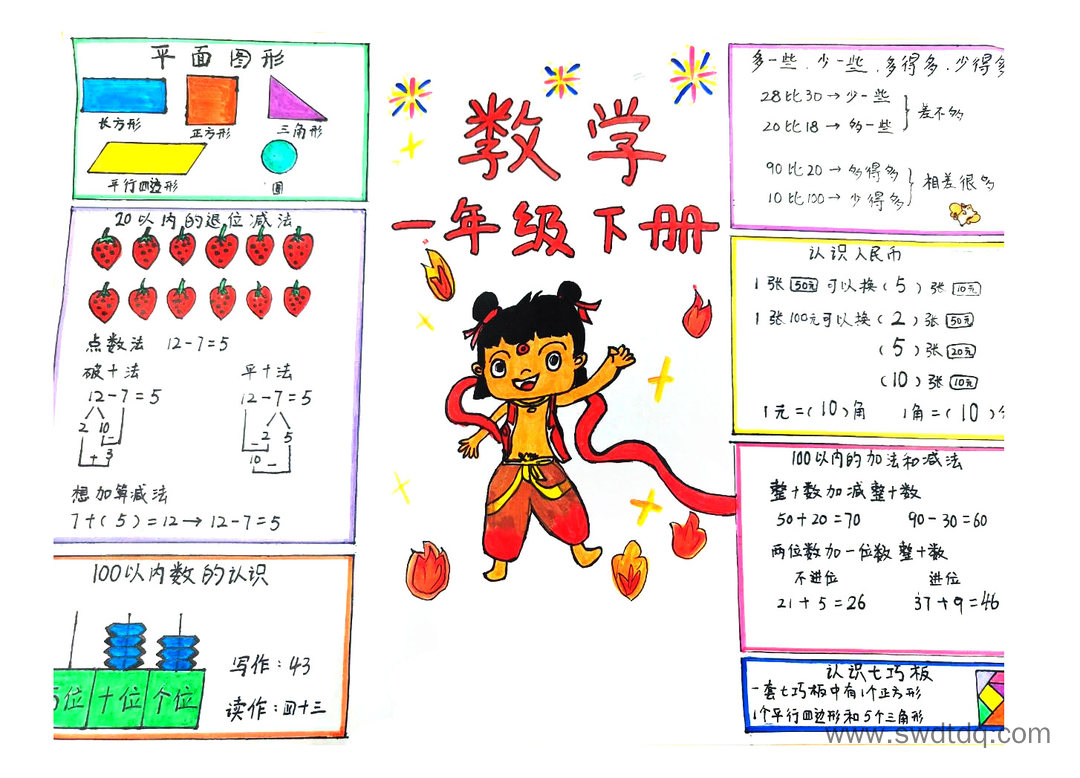 数学
一年级下册
平面图形
长方形 正方形 三角形
平行四边形 圆
20以内的退位减法
点数法 12-7=5
破十法 平十法
12-7=5 12-7=5
2 10 2 5
- - 
+ 3 10 -
想加算减法
7+(5)=12→12-7=5
100以内数的认识
百位 十位 个位
写作:43
读作:四十三
多一些、少一些、多得多、少得多
28比30→少一些
20比18→多一些
差不多
90比20→多得多
10比100→少得多
相差很多
认识人民币
1张50元可以换(5)张10元
1张100元可以换(2)张50元
(5)张20元
(10)张10元
1元=(10)角 1角=(10)分
100以内的加法和减法
整十数加减整十数
50+20=70 90-30=60
两位数加一位数整十数
不进位 进位
21+5=26 37+9=46
认识七巧板
一套七巧板中有1个正方形
1个平行四边形和5个三角形
www.swdtdq.com